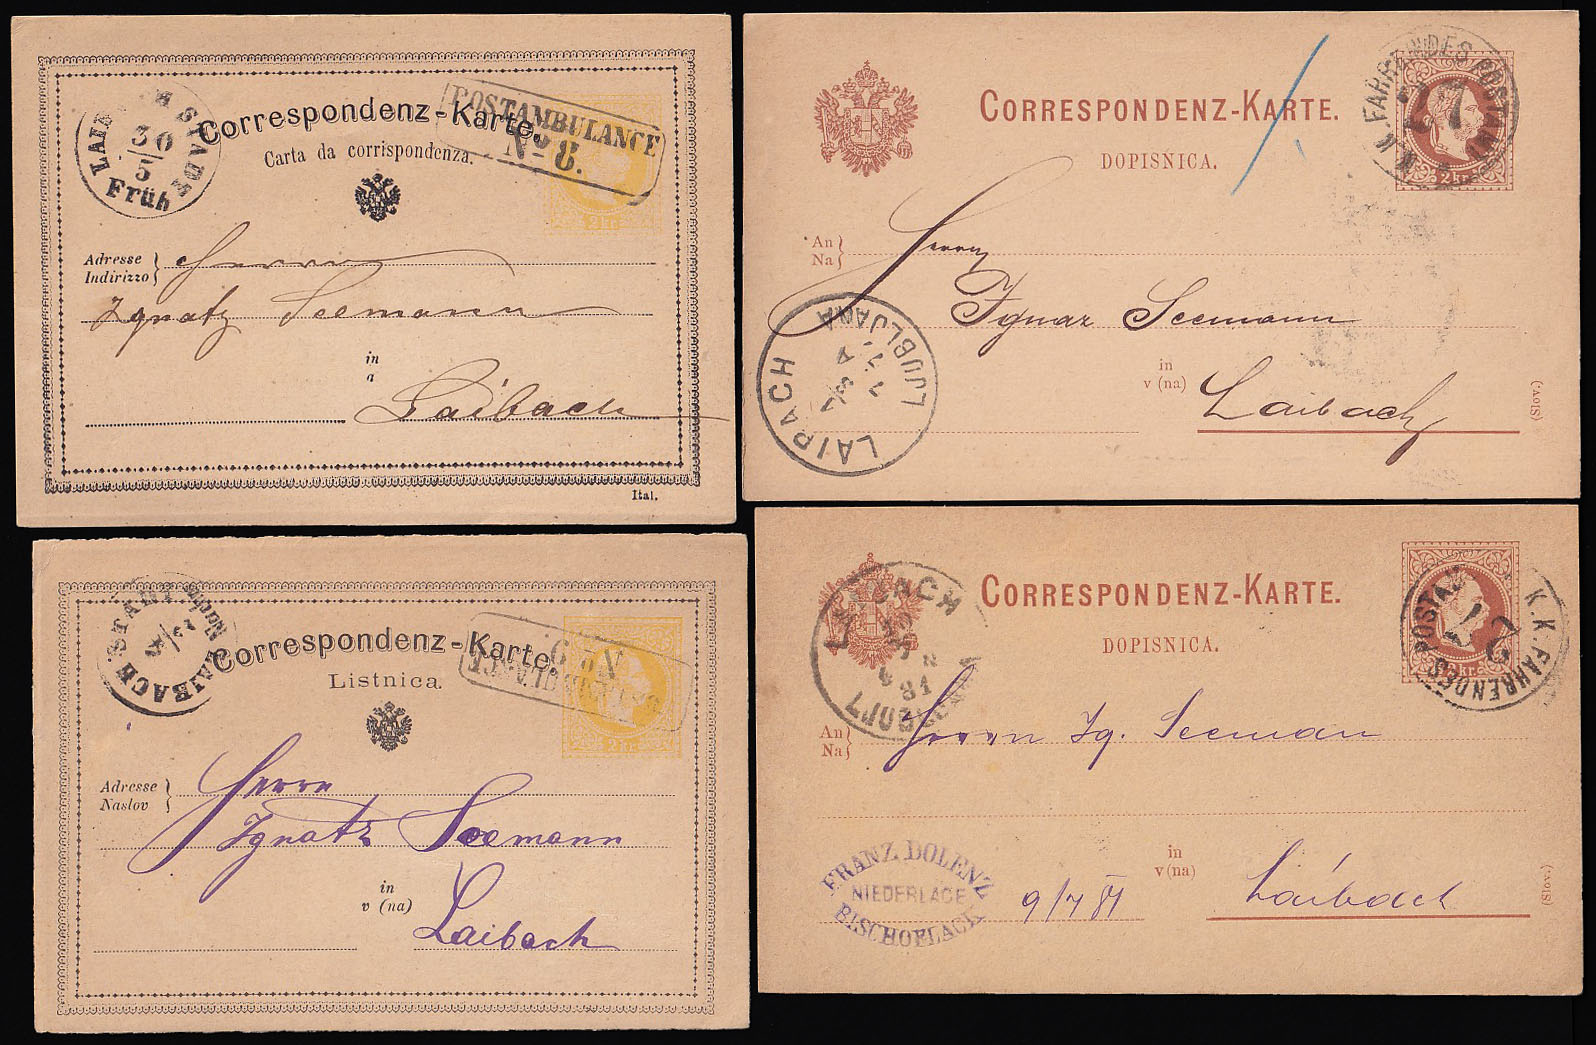 LAIBACH STADT
30
5
Früh
Correspondenz-Karte.
Carta da corrispondenza.
POSTAMBULANCE
No 8.
2 kr.
Adresse
Indirizzo
Herrn
Ignatz Seemann
in
a
Laibach
Ital.
CORRESPONDENZ-KARTE.
DOPISNICA.
K.K. FAHRENDES POSTAMT
27
2 kr.
An
Na
Herrn
Ignaz Seemann
in
v (na)
Laibach
(Slov.)
LAIBACH
LJUBLJANA
LAIBACH STADT
Correspondenz-Karte.
Listnica.
POSTAMBULANCE
No 9
2 kr.
Adresse
Naslov
Herrn
Ignatz Seemann
in
v (na)
Laibach
LAIBACH
81
CORRESPONDENZ-KARTE.
DOPISNICA.
K.K. FAHRENDES POSTAMT
27
2 kr.
An
Na
Herrn Ig. Seeman
in
v (na)
Laibach
(Slov.)
FRANZ DOLENZ
NIEDERLAGE
BISCHOFLACK
9/7 81